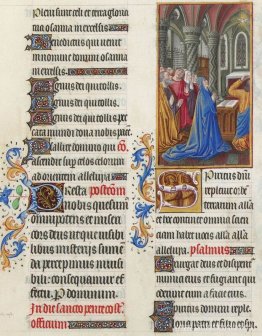 Pleni sunt celi et terra gloria
tua osanna in excelsis.
Benedictus qui venit
in nomine domini osanna
in excelsis.
Agnus dei qui tollis
Agnus dei qui tollis
Agnus dei qui tollis pec
cata mundi dona nobis pacem
Psallite domino qui
ascendit super celos celorum
ad orientem alleluya
Presta
nobis quesum
omnipotens et miseri
cors deus ut que visibi
libus misteriis sumen
da percepimus invisi
bili consequamur ef
fectu. P dominum.
In die sancto penthecost
officium
Spiritus dni
replevit orbe
terrarum alla
et hoc quod continet omnia scien
ciam habet vocis alla alla
alleluya. psalmus
Exurgat deus et dissipent
inimici eius et fugiant qui
oderunt eum a facie eius.
Spiritus domini reple.
Gloria patri et filio et spi